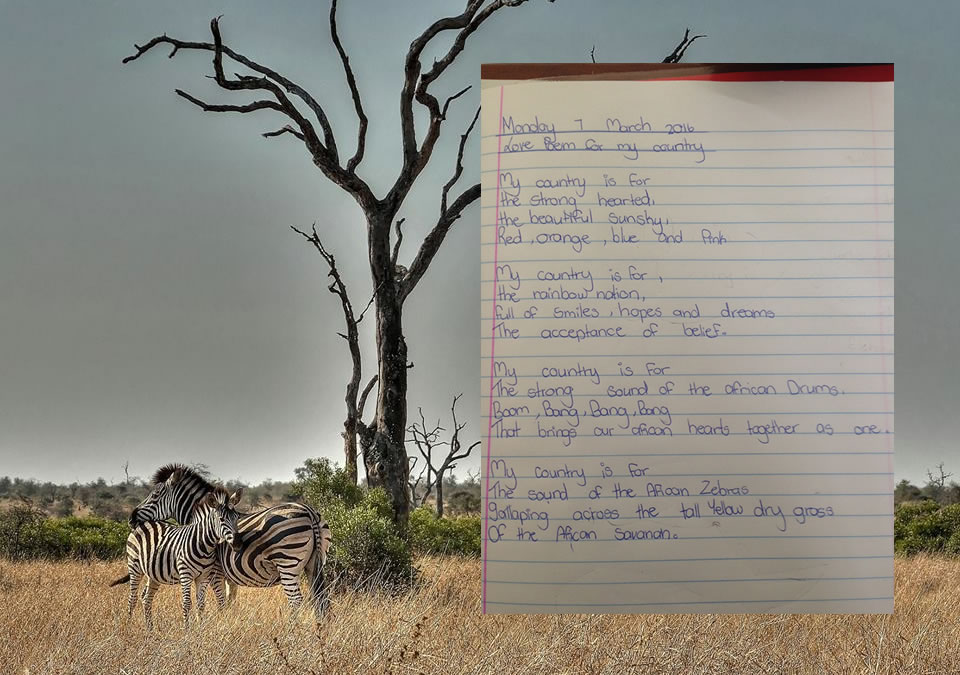 Monday 7 March 2016
Love Poem for my country
My country is for
the strong hearted,
the beautiful sunshy,
Red, orange, blue and Pink
My country is for,
the rainbow nation,
full of smiles, hopes and dreams
The acceptance of belief.
My country is for
The strong sound of the african Drums.
Boom, Bang, Bang, Bang
That brings our african hearts together as one.
My country is for
The sound of the African Zebras
gallaping across the tall Yelow dry grass
Of the African Savanah.